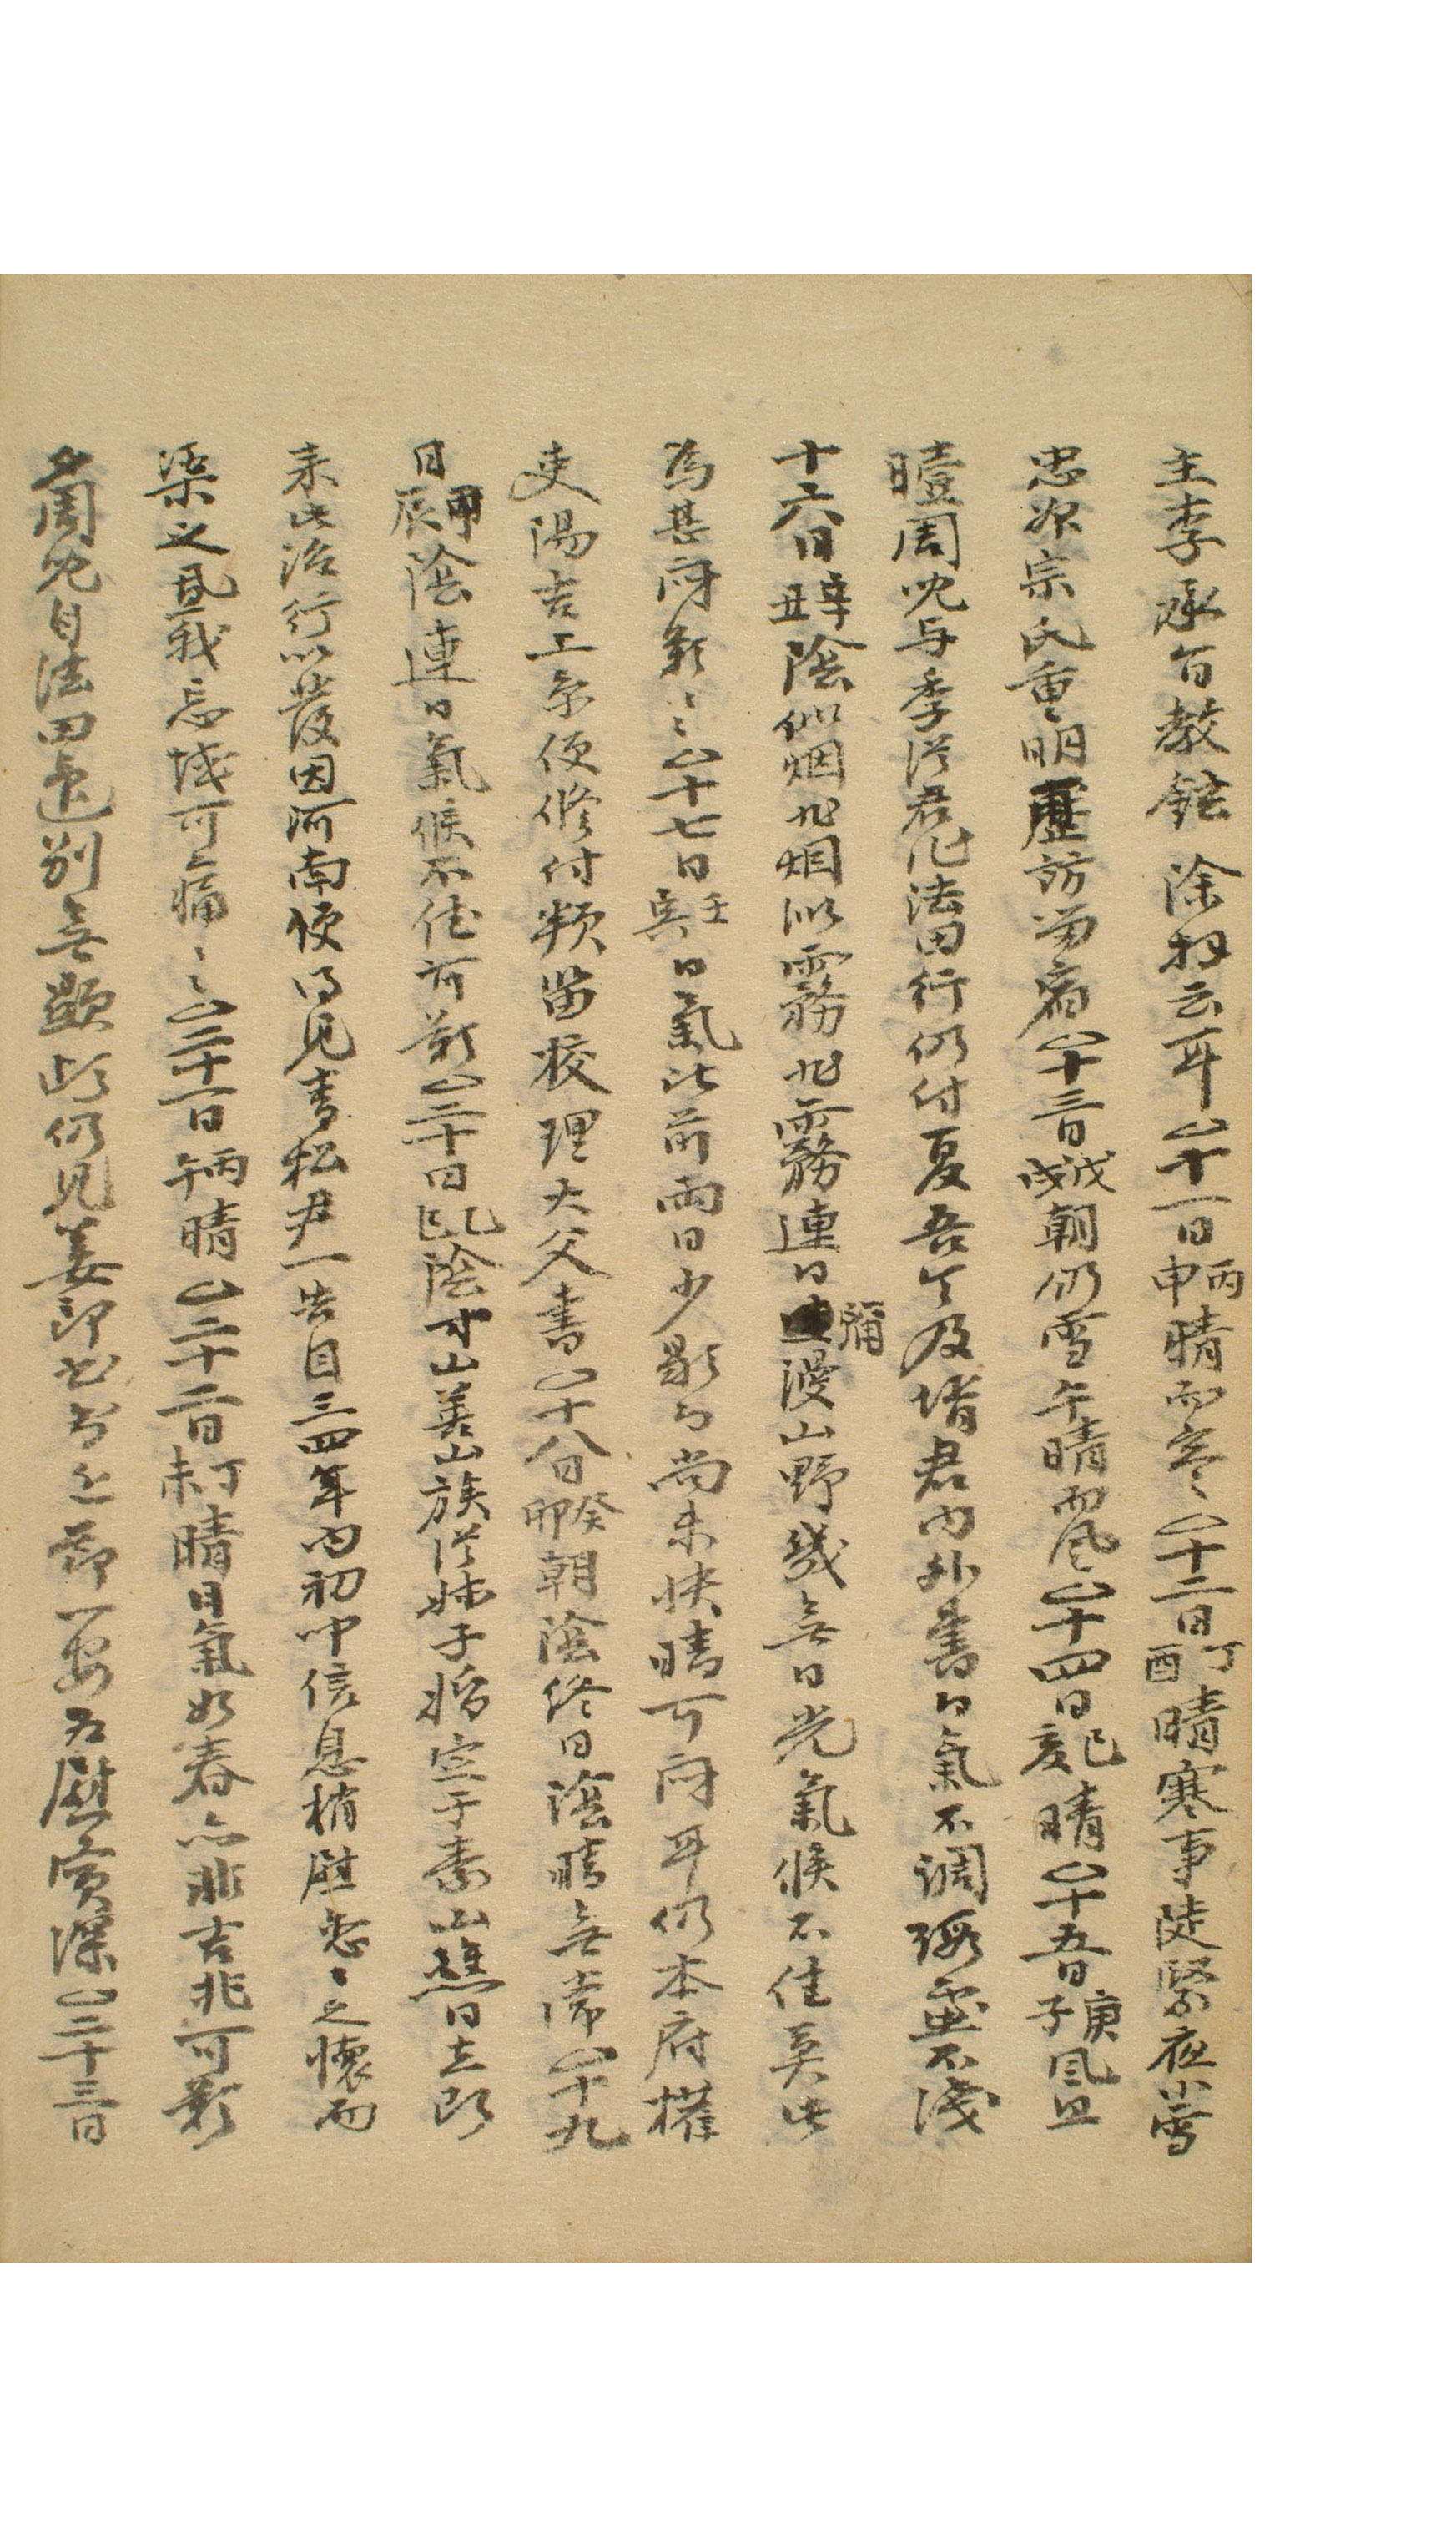 主李承旨教鉉除拜云耳△十一日丙申晴而寒△十二日丁酉晴寒事陡緊夜小雪
忠原宗氏重明歷訪留宿△十三日戊戌朝仍雪午晴而風△十四日己亥晴△十五日庚子風且
曀周兒与季從君作法田行仍付夏吾丫及壻君內外書日氣不調瑕虫不淺
十六日辛丑陰似烟非烟似霧非霧連日彌漫山野幾無日光氣候不佳莫此
爲甚悶歎〻〻△十七日壬寅日氣比前兩日少歇而尚未快晴可悶耳仍本府權
吏陽吉上京便修付頖留校理大父書△十八日癸卯朝陰終日陰晴無常△十九
日甲辰陰連日氣候不佳可歎△二十日乙巳陰才山善山族從姊子婚定于素山樵日去即
來此治行以發因河南便得見靑松尹一告目三四年內初聞信息稍慰悲〻之懷而
渠之夙我忘域可痛〻〻△二十一日丙午晴△二十二日丁未晴日氣如春亦非吉兆可歎
夕周兒自法田還別無顯頉仍見姜郎書与上節一安爲慰實深△二十三日